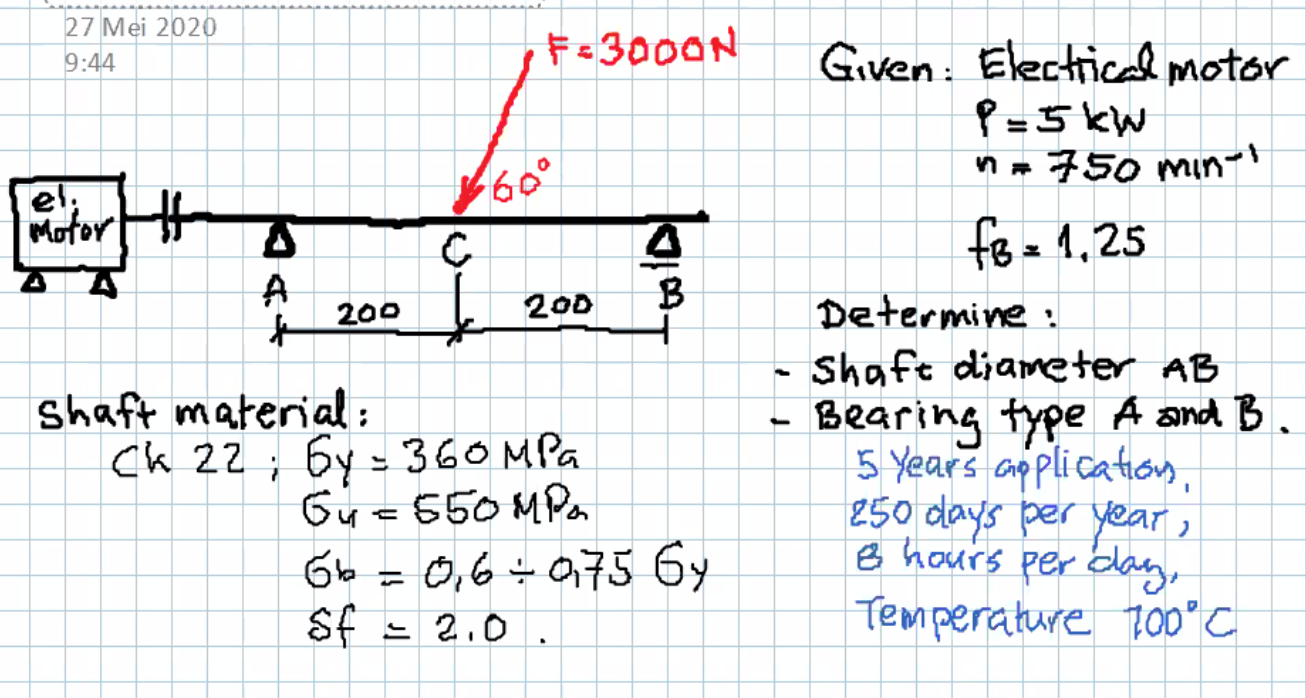 27 Mei 2020
9:44
F = 3000N
60°
el.
Motor
A
C
B
200
200
Shaft material:
Ck 22 ; σy = 360 MPa
σu = 550 MPa
σb = 0,6 ÷ 0,75 σy
Sf = 2.0 .
Given: Electrical motor
P = 5 kW
n = 750 min⁻¹
fB = 1.25
Determine :
- Shaft diameter AB
- Bearing type A and B.
5 Years application,
250 days per year,
8 hours per day,
Temperature 100°C